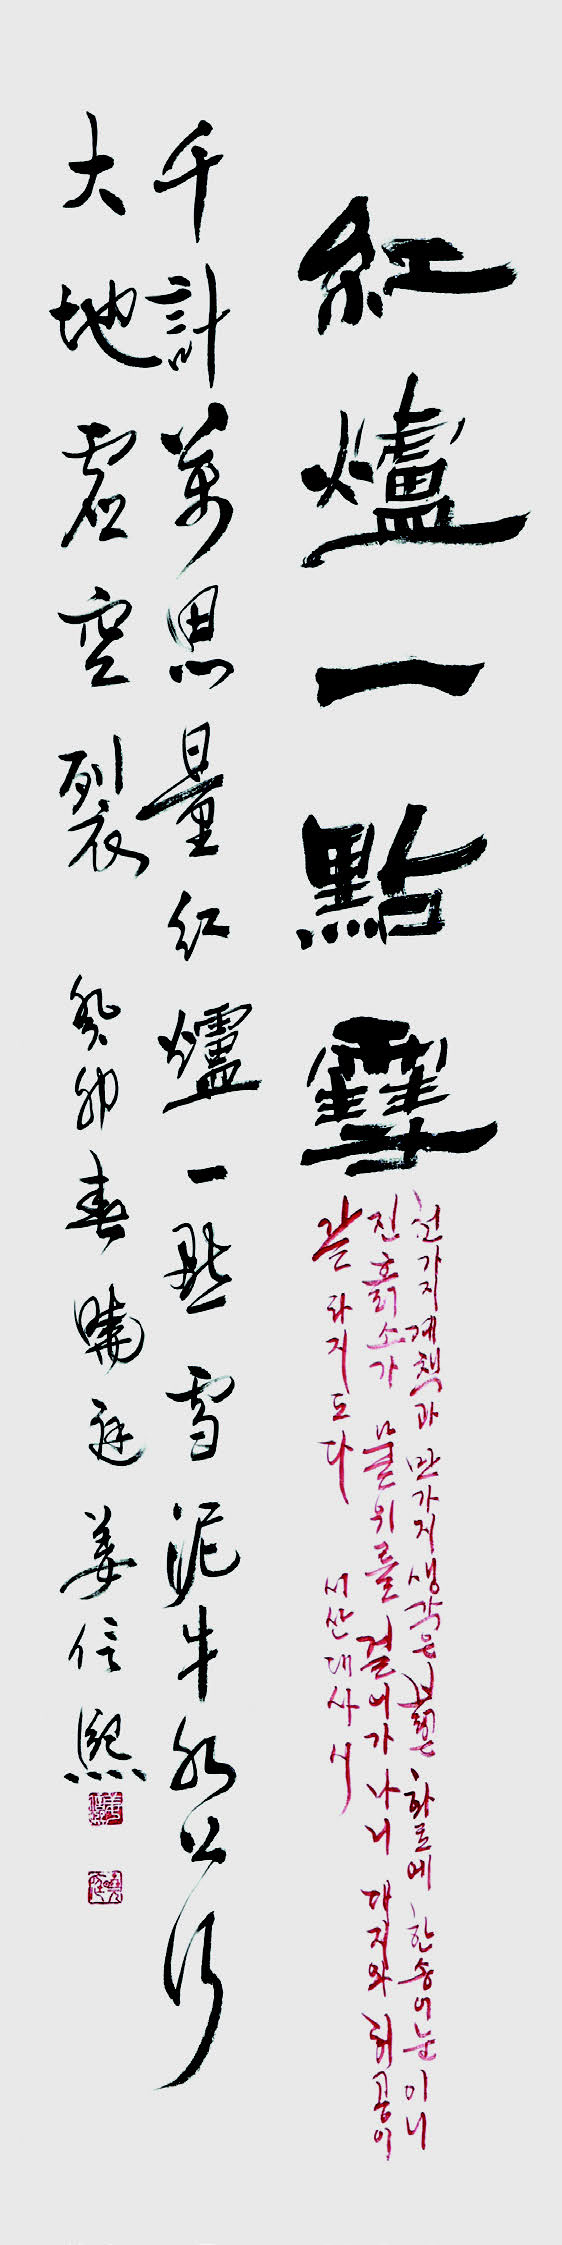 紅爐一點雪
천가지 계책과 만가지 생각은 붉은 화로에 한송이 눈이니
진흙소가 물위를 걸어가나니 대지와 허공이
갈라지도다 서산대사 시
千計萬思量紅爐一點雪泥牛水上行
大地虛空裂 癸卯春 曉庭 姜信熙